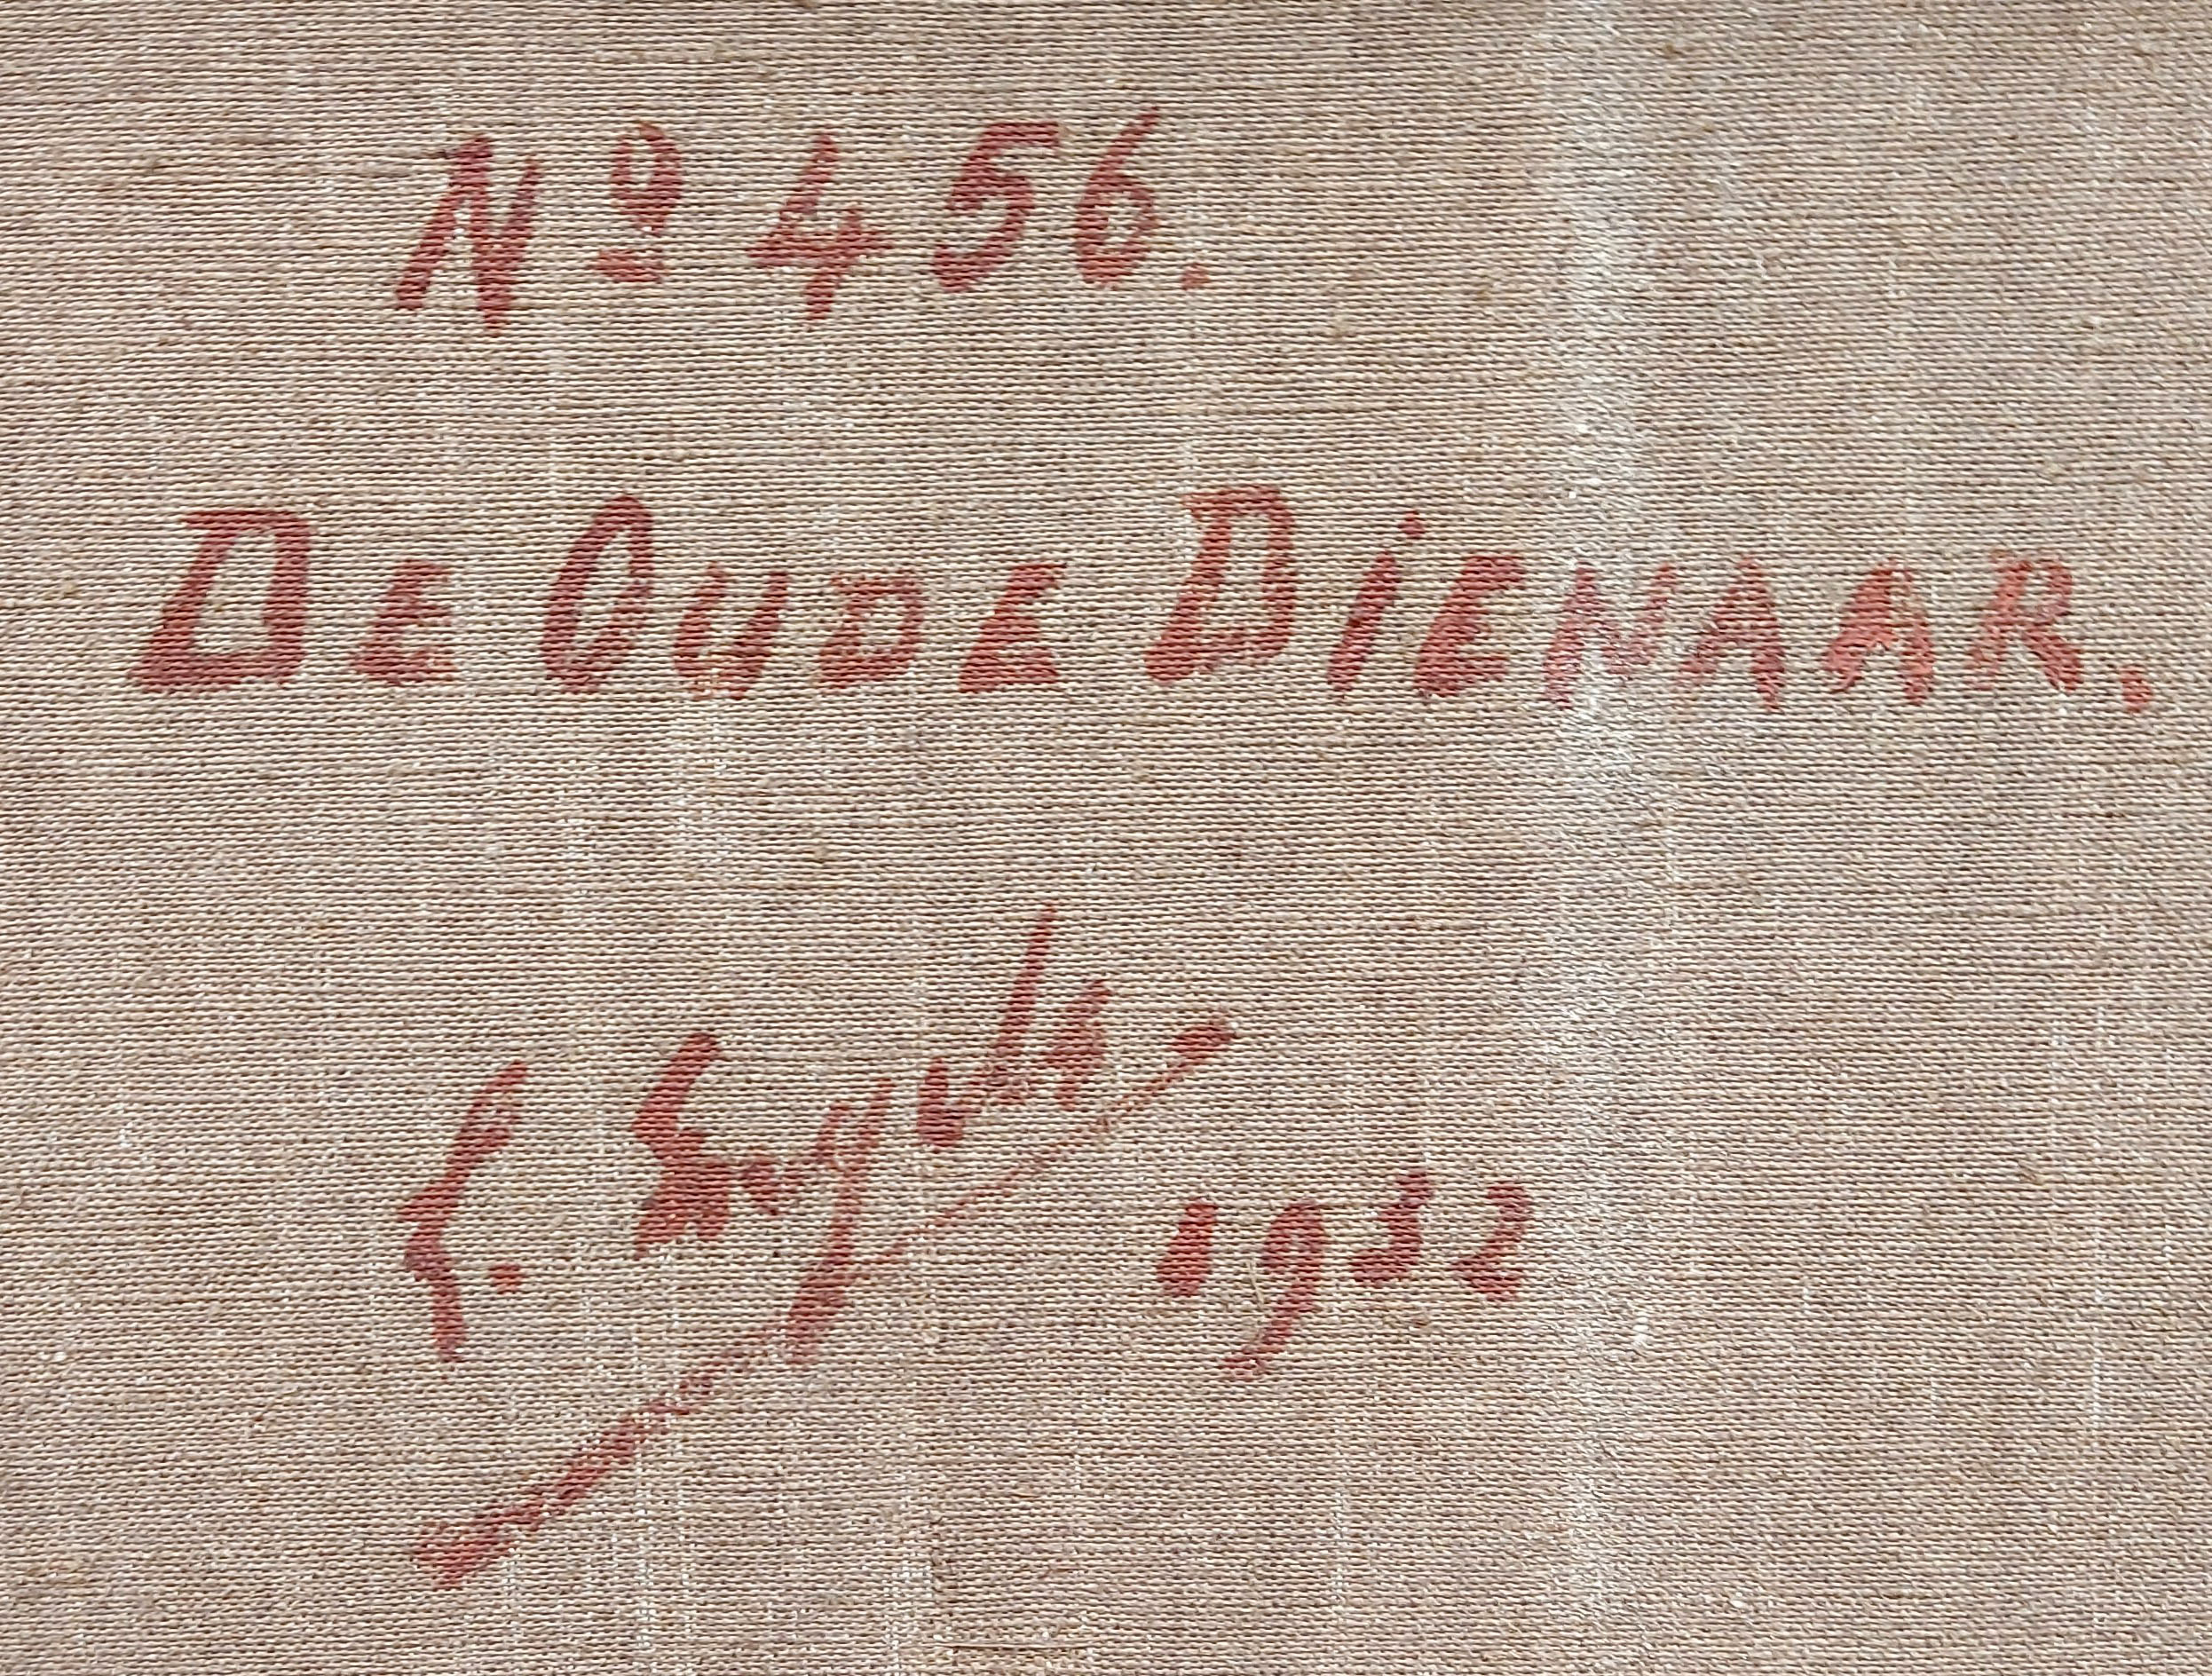 Nº 456.
DE OUDE DiENAAR.
1932